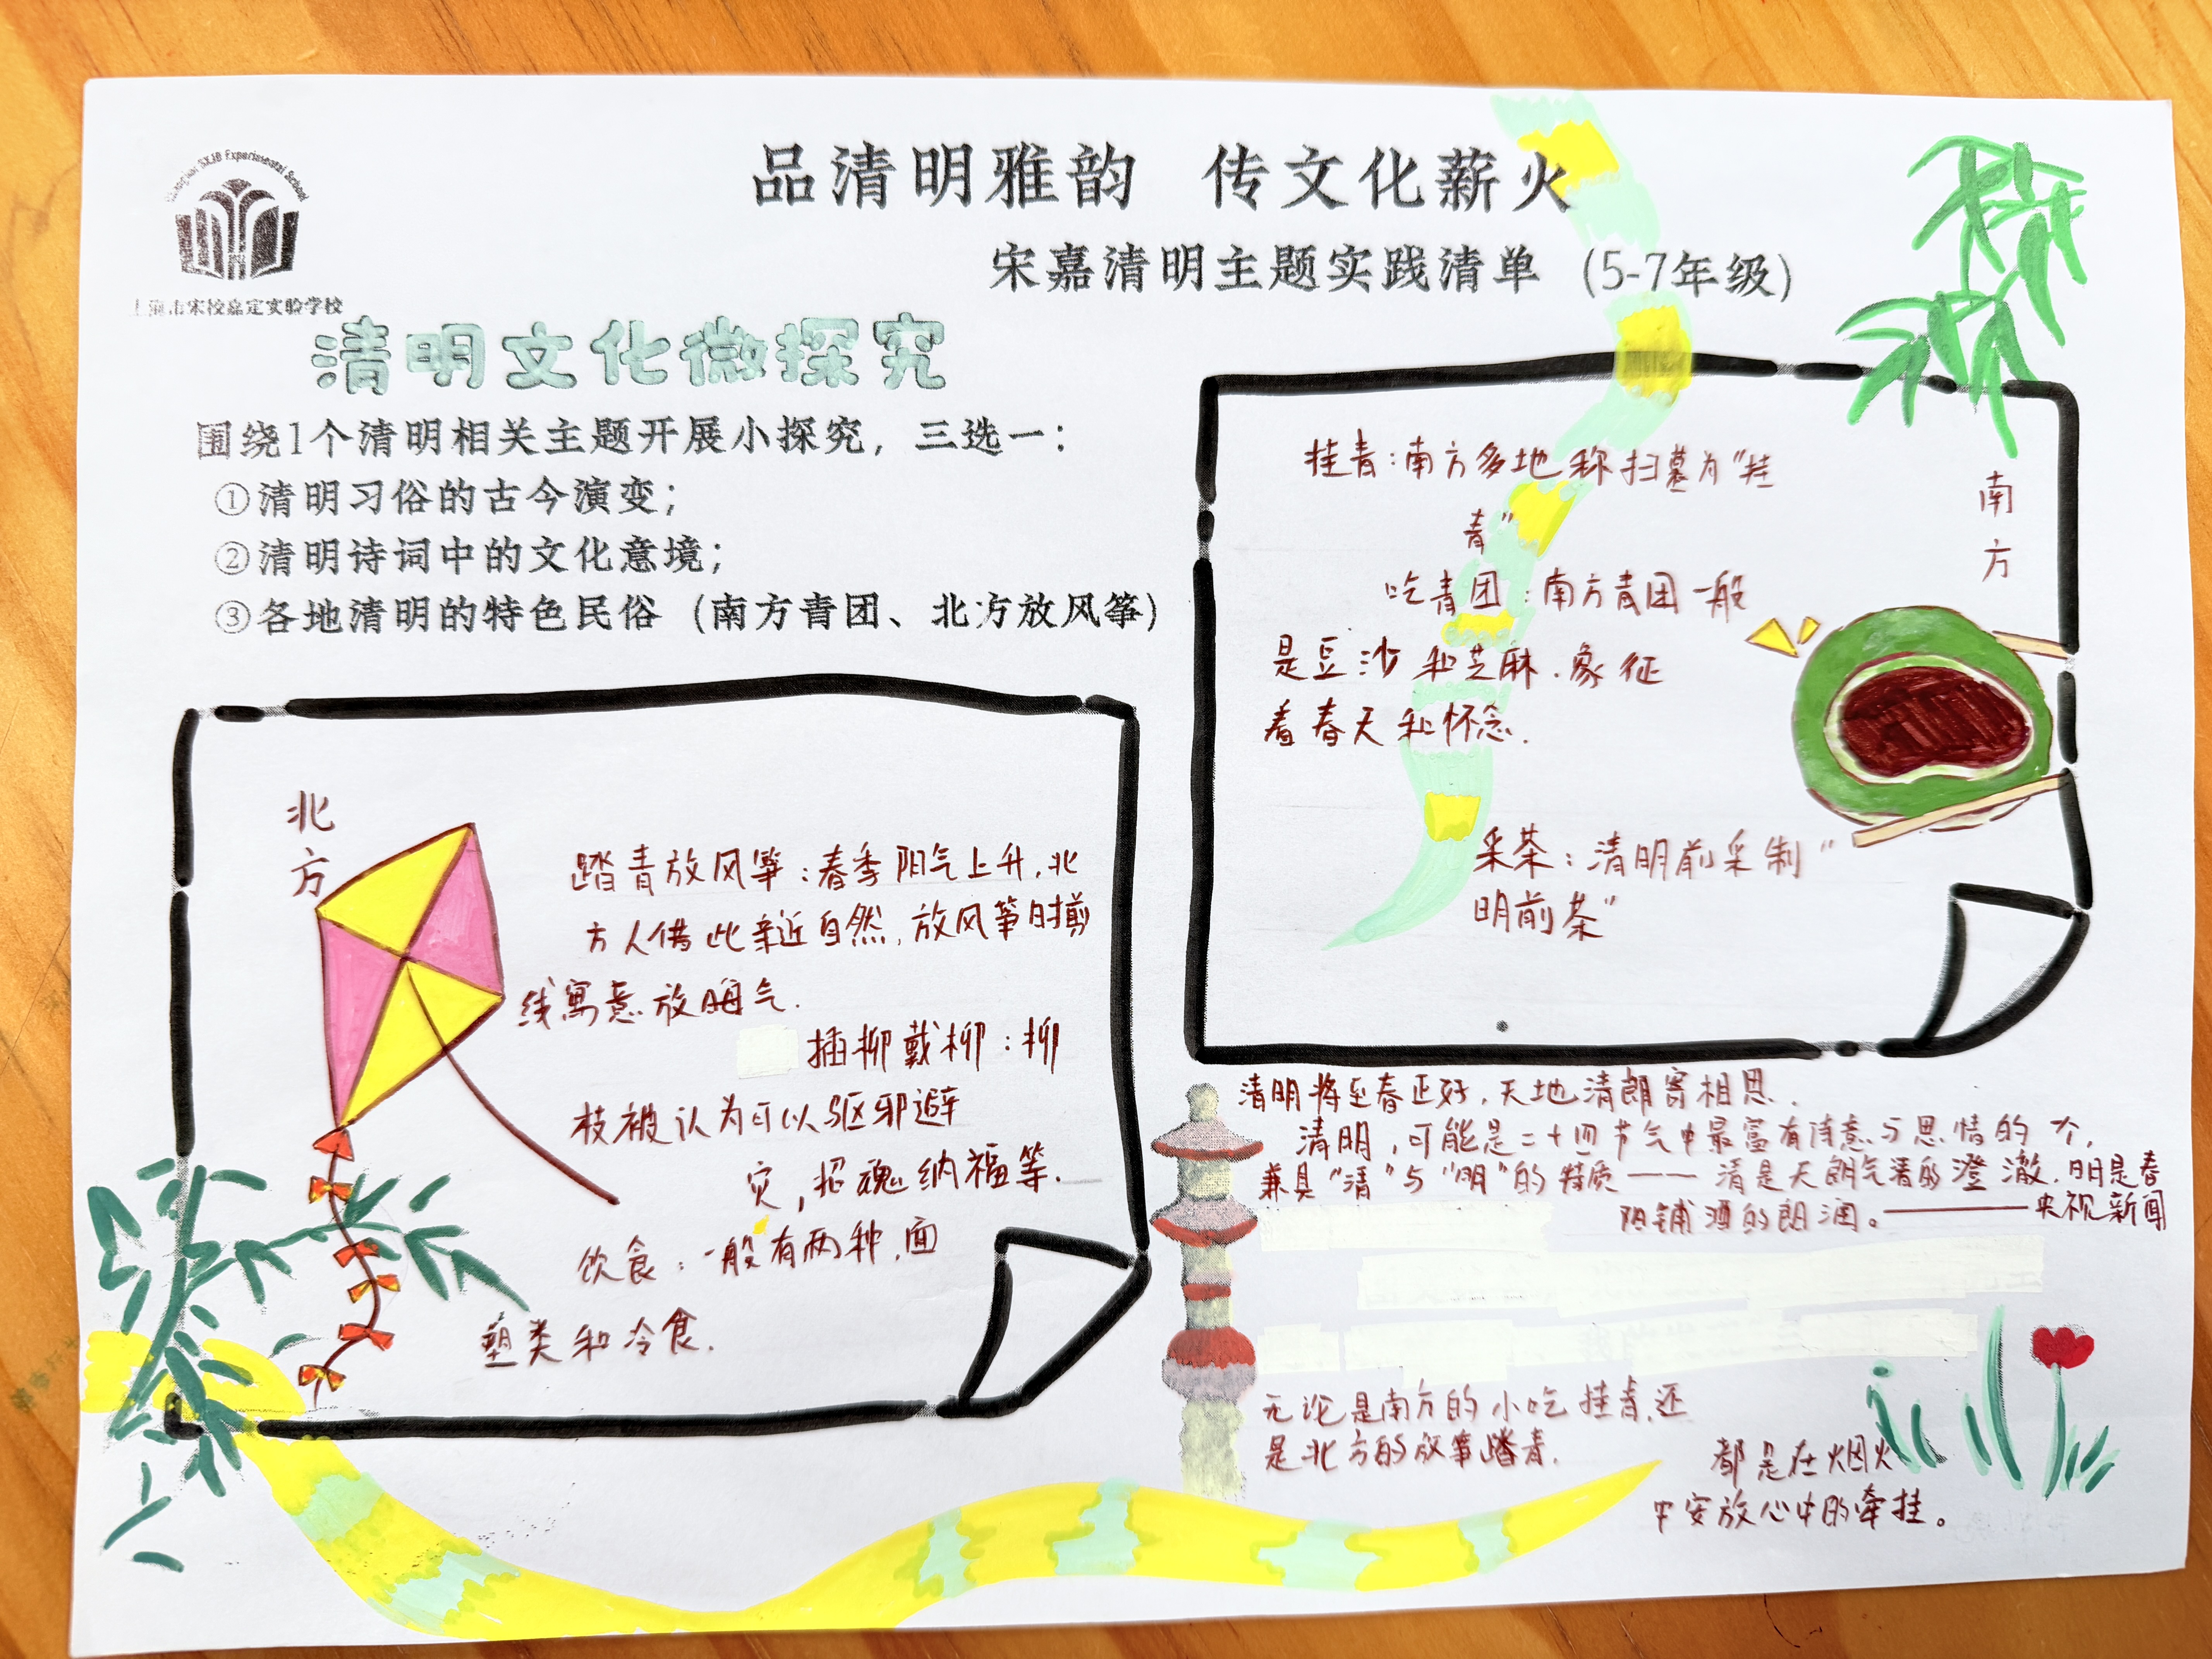 SXJD Experimental School
上海市宋校嘉定实验学校
品清明雅韵 传文化薪火
宋嘉清明主题实践清单 (5-7年级)
清明文化微探究
围绕1个清明相关主题开展小探究，三选一：
①清明习俗的古今演变；
②清明诗词中的文化意境；
③各地清明的特色民俗（南方青团、北方放风筝）
北方
踏青放风筝：春季阳气上升，北
方人借此亲近自然，放风筝时剪
线寓意放晦气.
插柳戴柳：柳
枝被认为可以驱邪避
灾，招魂纳福等.
饮食：一般有两种，面
塑类和冷食.
南方
挂青：南方多地称扫墓为“挂
青”
吃青团：南方青团一般
是豆沙和芝麻.象征
着春天和怀念.
采茶：清明前采制“
明前茶”
清明将至春正好，天地清朗寄相思.
清明，可能是二十四节气中最富有诗意与思情的一个，
兼具“清”与“明”的特质——清是天朗气清的澄澈，明是春
阳铺洒的朗润。————央视新闻
无论是南方的小吃挂青，还
是北方的放筝踏青.
都是在烟火
中安放心中的牵挂。